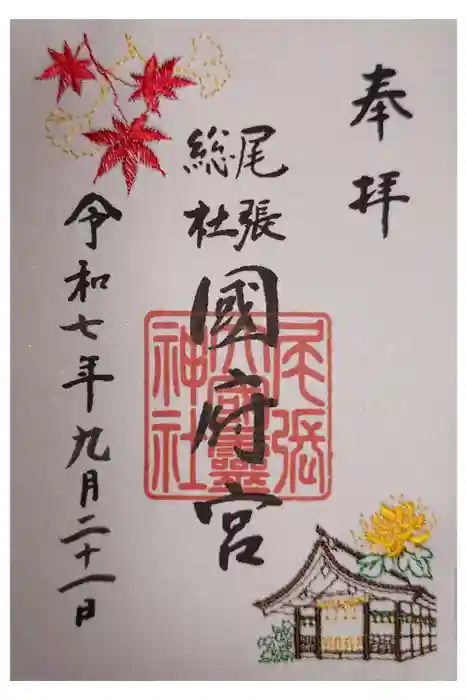 奉拝
尾張
総社
國府宮
尾張
大國霊
神社
令和七年九月二十一日